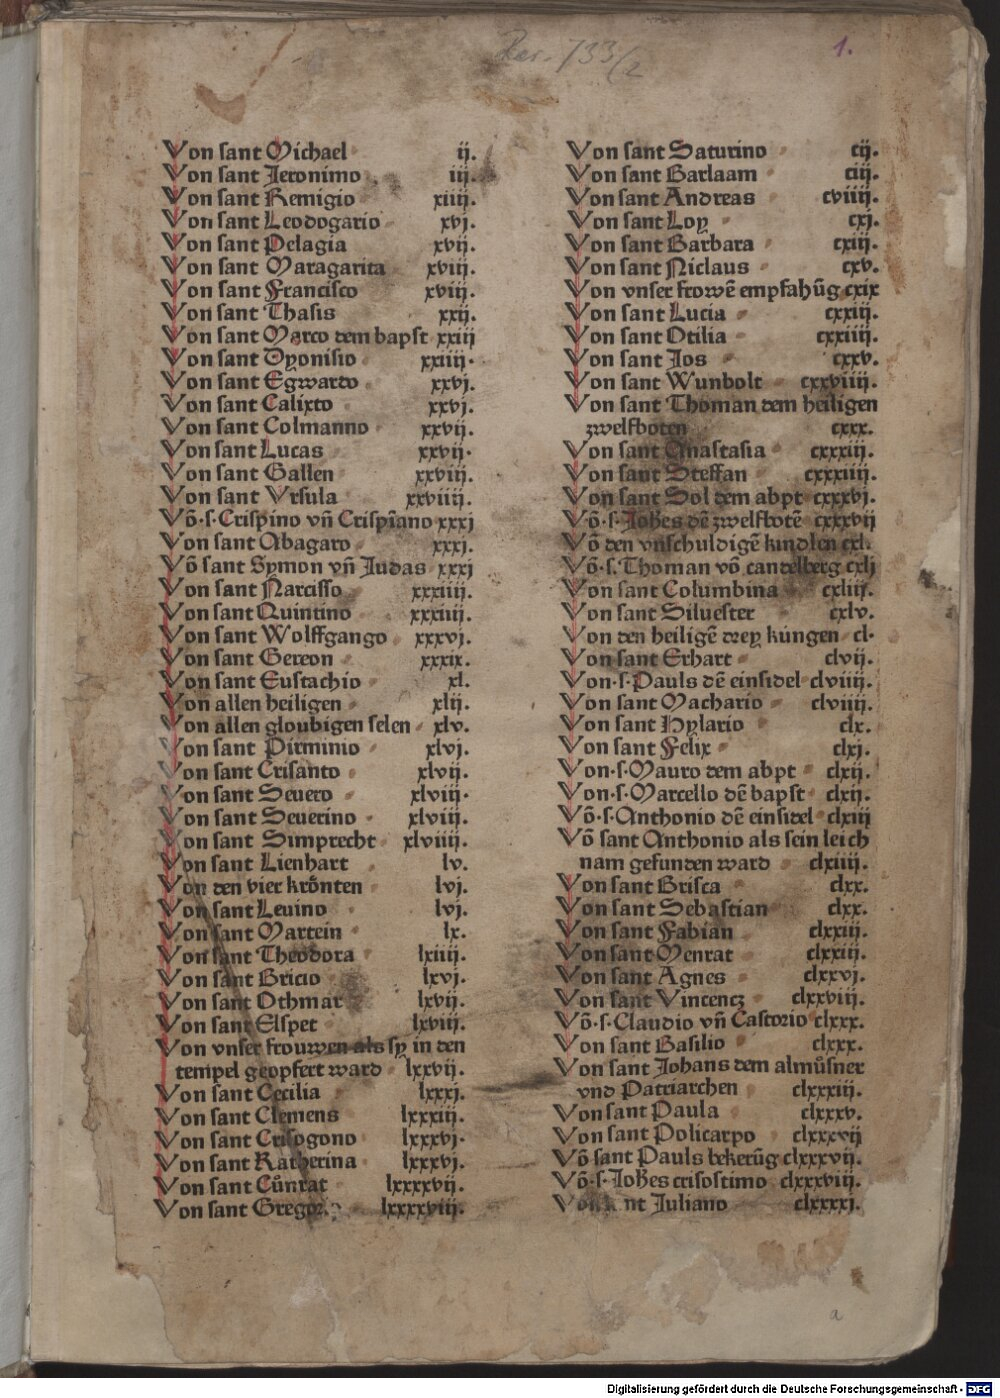 Rar. 733/2
1.
Von sant Michael ij.
Von sant Jeronimo iij.
Von sant Remigio xiiij.
Von sant Leodogario xvj.
Von sant Pelagia xvij.
Von sant Maragarita xviij.
Von sant Francisco xviij.
Von sant Thasis xxij.
Von sant Marco dem bapst xxiij
Von sant Dyonisio xxiiij·
Von sant Egwardo xxvj.
Von sant Calixto xxvj.
Von sant Colmanno xxvij.
Von sant Lucas xxvij·
Von sant Gallen xxviij.
Von sant Vrsula xxviiij.
Võ·s·Crispino vñ Crispīano xxxj
Von sant Abagaro xxxj.
Võ sant Symon vñ Judas xxxj
Von sant Narcisso xxxiiij.
Von sant Quintino xxxiiij.
Von sant Wolffgango xxxvj.
Von sant Gereon xxxix.
Von sant Eustachio xl.
Von allen heiligen xlij.
Von allen gloubigen selen xlv.
Von sant Pirminio xlvj.
Von sant Crisanto xlvij.
Von sant Seuero xlviij·
Von sant Seuerino xlviij.
Von sant Simprecht xlviiij.
Von sant Lienhart lv.
Von den vier kroͤnten lvj.
Von sant Leuino lvj.
Von sant Martein lx.
Von sant Theodora lxiiij.
Von sant Bricio lxvj.
Von sant Othmar lxvij.
Von sant Elspet lxviij.
Von vnser frouwen als sy in den
tempel geopfert ward lxxvij.
Von sant Cecilia lxxxj.
Von sant Clemens lxxxiij.
Von sant Crisogono lxxxvj·
Von sant Katherina lxxxvj.
Von sant Cuͦnrat lxxxxvij.
Von sant Gregor lxxxxviij.
Von sant Saturino cij.
Von sant Barlaam ciij.
Von sant Andreas cviiij.
Von sant Loy cxj.
Von sant Barbara cxiij.
Von sant Niclaus cxv.
Von vnser frowē empfahūg cxix
Von sant Lucia cxxiij.
Von sant Otilia cxxiiij.
Von sant Jos cxxv.
Von sant Wunbolt cxxviiij.
Von sant Thoman dem heiligen
zwelfboten cxxx.
Von sant Anastasia cxxxiij.
Von sant Steffan cxxxiiij.
Von sant Sol dem abpt cxxxvj.
Võ·s·Johēs dē zwelfbotē cxxxvij
Võ den vnschuldigē kindlen cxl.
Võ·s·Thoman võ candelberg cxlj
Von sant Columbina cxliij.
Von sant Siluester cxlv.
Von den heiligē drey kúngen cl·
Von sant Erhart clvij.
Von·s·Pauls dē einsidel clviiij.
Von sant Machario clviiij.
Von sant Hylario clx.
Von sant Felix clxj.
Von·s·Mauro dem abpt clxij.
Von·s·Marcello dē bapst clxij.
Võ·s·Anthonio dē einsidel clxiij
Võ sant Anthonio als sein leich
nam gefunden ward clxiiij.
Von sant Brisca clxx.
Von sant Sebastian clxx.
Von sant Fabian clxxiij.
Von sant Menrat clxxiij.
Von sant Agnes clxxvj.
Von sant Vincencz clxxviij.
Võ·s·Claudio vñ Castorio clxxx.
Von sant Basilio clxxx.
Von sant Johans dem almuͦsner
vnd Patriarchen clxxxiij.
Von sant Paula clxxxv.
Von sant Policarpo clxxxvij
Võ sant Pauls bekerūg clxxxvij.
Võ·s·Johēs crisostimo clxxxviij.
Von Juliano clxxxxj.
a
Digitalisierung gefördert durch die Deutsche Forschungsgemeinschaft - DFG